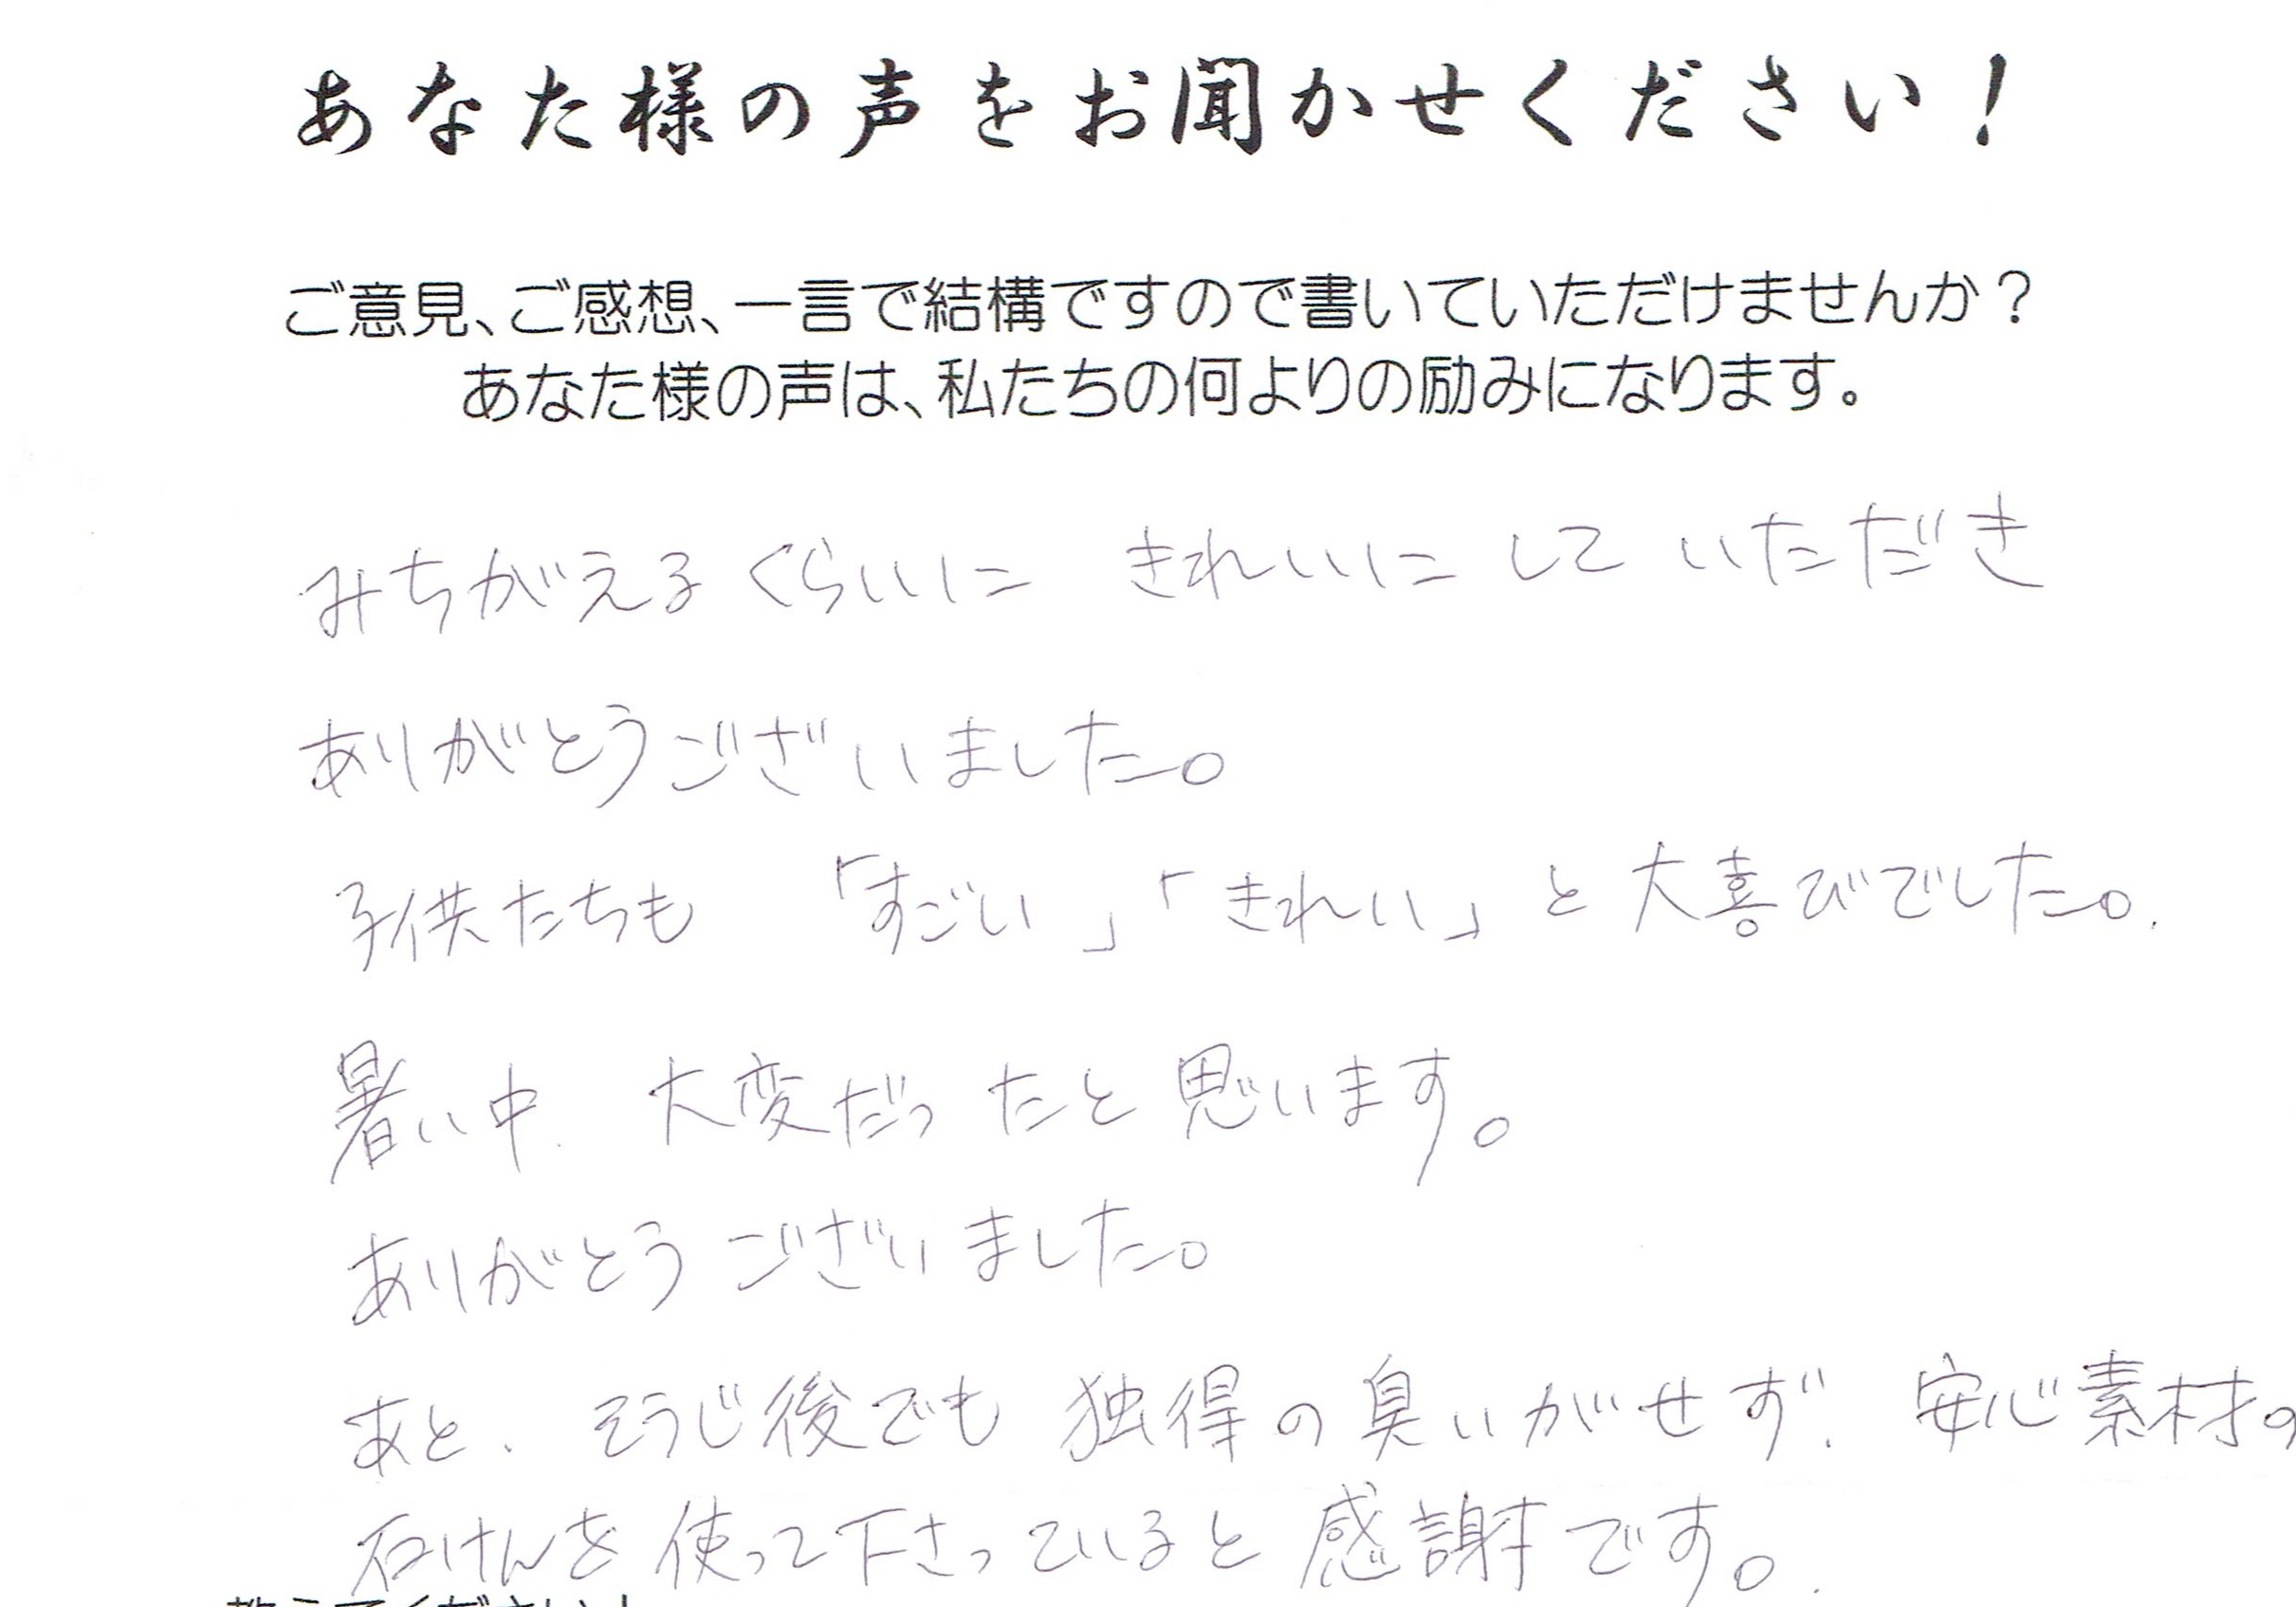 あなた様の声をお聞かせください！
ご意見、ご感想、一言で結構ですので書いていただけませんか？
あなた様の声は、私たちの何よりの励みになります。
みちがえるくらいに きれいにして いただき
ありがとうございました。
子供たちも 「すごい」「きれい」と大喜びでした。
暑い中、大変だったと思います。
ありがとうございました。
あと、そうじ後でも独得の臭いがせず、安心素材の
石けんを使って下さっていると感謝です。
教えてください！